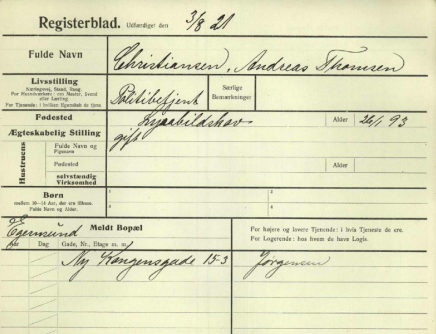 Registerblad. Udfærdiget den 3/8 21
Fulde Navn Christiansen, Andreas Thomsen
Livsstilling
Næringsvej, Stand, Rang.
For Haandværkere: om Mester, Svend
eller Lærling
For Tjenende: i hvilken Egenskab de tjene
Politibetjent
Særlige
Bemærkninger
Fødested Lysabildskov Alder 26/1 93
Ægteskabelig Stilling gift
Hustruens
Fulde Navn og
Pigenavn
Fødested Alder
selvstændig
Virksomhed
Børn
mellem 10-14 Aar, der ere ilbine.
Fulde Navn og Alder.
1 2
3 4
Egernsund Meldt Bopæl
Aar Dag Gade, Nr., Etage m. m.
For højere og lavere Tjenende: i hvis Tjeneste de ere.
For Logerende: hos hvem de have Logis.
Ny Kongensgade 15-3 Jørgensen